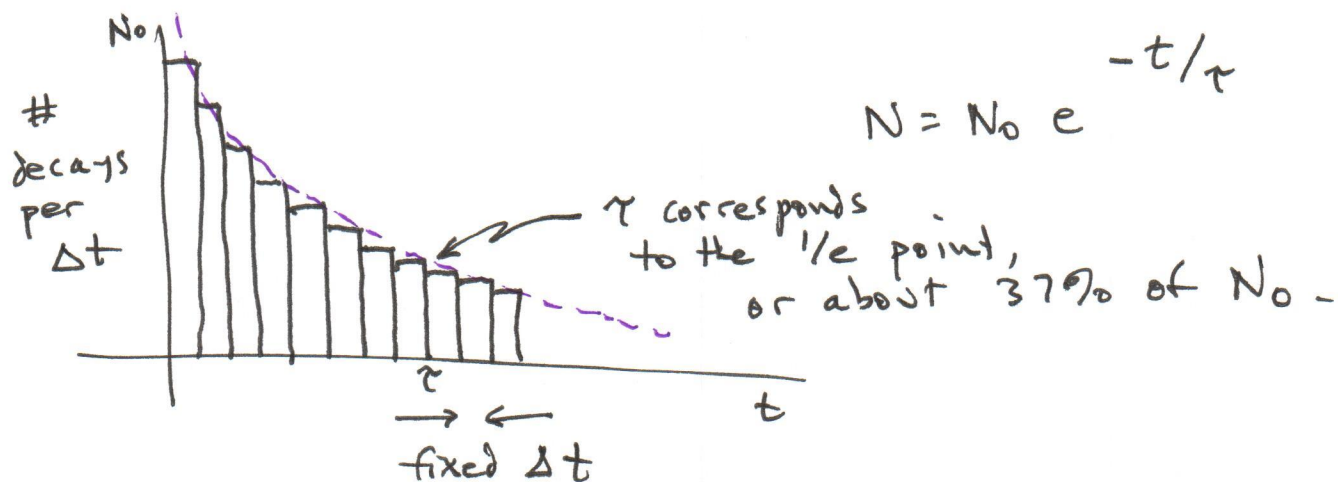 No
#
decays
per
Δt
N = No e^-t/τ
τ corresponds
to the 1/e point,
or about 37% of No -
τ
t
fixed Δt